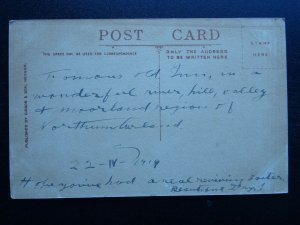 POST CARD
THIS SPACE MAY BE USED FOR CORRESPONDENCE
ONLY THE ADDRESS
TO BE WRITTEN HERE
STAMP
HERE
PUBLISHED BY GIBSON & SON, HEXHAM.
Famous old Inn, in a
wonderful river, hill, valley
& moorland region of
Northumberland
22-IV-1919
Hope you've had a real reviving Easter,